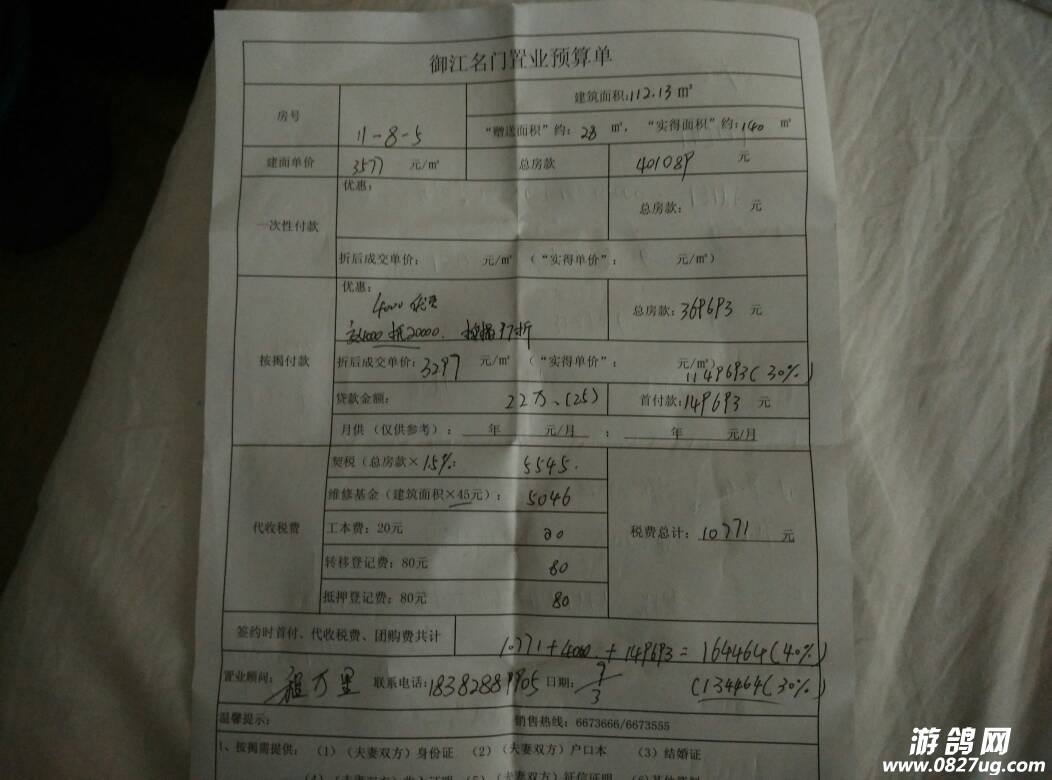 御江名门置业预算单
房号
11-8-5
建筑面积:112.13㎡
“赠送面积”约: 28 ㎡, “实得面积”约:140 ㎡
建面单价 3577 元/㎡ 总房款 401089 元
一次性付款
优惠:
总房款: 元
折后成交单价: 元/㎡ (“实得单价”: 元/㎡)
按揭付款
优惠:
4000优惠
交4000抵20000. 按揭97折
总房款:369693 元
折后成交单价:3297 元/㎡ (“实得单价”: 元/㎡)
119693(30%)
贷款金额: 22万、(25) 首付款:149693 元
月供(仅供参考): 年 元/月 ; 年 元/月
代收税费
契税(总房款×1.5%: 5545.
维修基金(建筑面积×45元): 5046
工本费:20元 20
转移登记费:80元 80
抵押登记费:80元 80
税费总计:10771 元
签约时首付、代收税费、团购费共计 10771+4000+149693=164464(40%)
置业顾问: 程万里 联系电话:18382889905 日期: 9/3
(134464(30%)
温馨提示: 销售热线:6673666/6673555
1、按揭需提供:(1)(夫妻双方)身份证 (2)(夫妻双方)户口本 (3)结婚证
游鸽网
www.0827ug.com